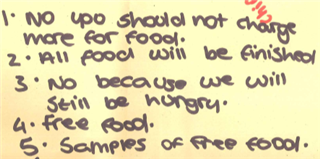 1. NO upo should not charge
more for food.
2. All food will be finished
3. No because we will
still be hungry.
4. free food.
5. Samples of free food.